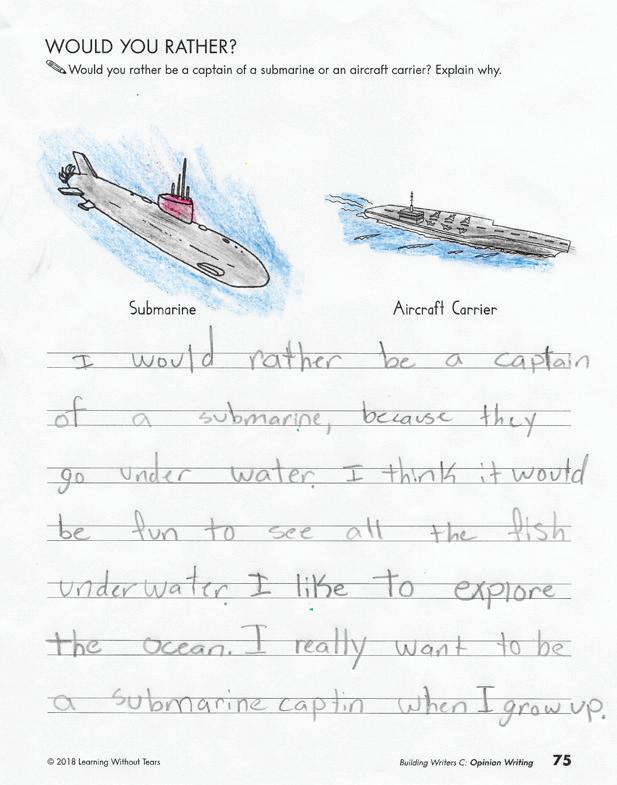 WOULD YOU RATHER?
Would you rather be a captain of a submarine or an aircraft carrier? Explain why.
Submarine
Aircraft Carrier
I would rather be a captain
of a submarine, because they
go under water. I think it would
be fun to see all the fish
underwater. I like to explore
the ocean. I really want to be
a submarine captin when I grow up.
© 2018 Learning Without Tears
Building Writers C: Opinion Writing 75